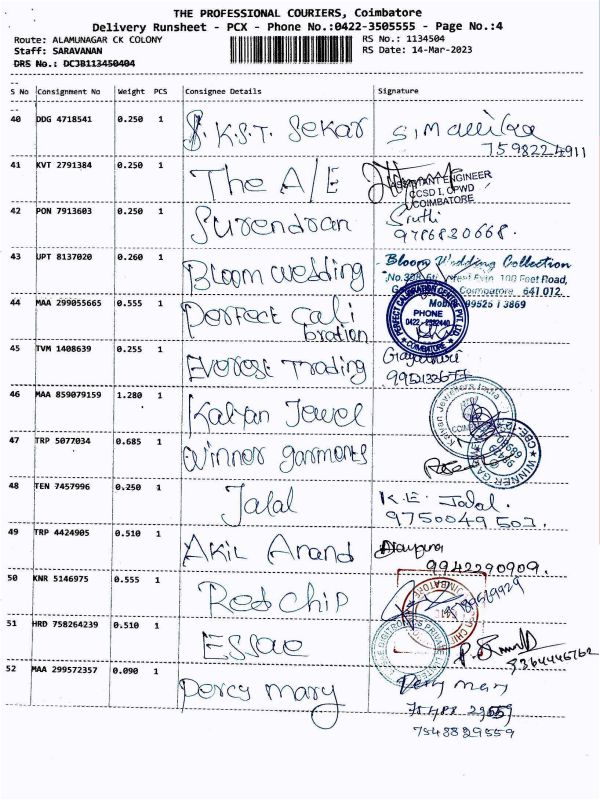 THE PROFESSIONAL COURIERS, Coimbatore
Delivery Runsheet - PCX - Phone No.:0422-3505555 - Page No.:4
Route: ALAMUNAGAR CK COLONY
RS No.: 1134504
Staff: SARAVANAN
RS Date: 14-Mar-2023
DRS No.: DCJB113450404
S No Consignment No Weight PCS Consignee Details Signature
40 DDG 4718541 0.250 1 S.K.S.T. Sekar
7598224911
41 KVT 2791384 0.250 1 The A/E
ASSISTANT ENGINEER
CCSD I, CPWD
COIMBATORE
42 PON 7913603 0.250 1 Surendran Sruthi
9786820668.
43 UPT 8137020 0.260 1 Bloom wedding Bloom Wedding Collection
100 Feet Road,
Coimbatore 641 012.
44 MAA 299055665 0.555 1 Perfect Cali
bration
PERFECT CALIBRATION CENTRE PVT. LTD.
PHONE
0422
COIMBATORE
45 TVM 1408639 0.255 1 Everest Trading Gayathri
46 MAA 859079159 1.280 1 Kalyan Jewel
Kalyan Jewellers India
47 TRP 5077034 0.685 1 Winner garments
WINNER GA
CBE-12
48 TEN 7457996 0.250 1 Jalal K.E. Jalal.
9750049507.
49 TRP 4424905 0.510 1 Akil Anand
9942290909.
50 KNR 5146975 0.555 1 Red chip
51 HRD 758264239 0.510 1 Essae
9364446762
52 MAA 299572357 0.090 1 Percy mary Percy mary
75488 29559
7548829559